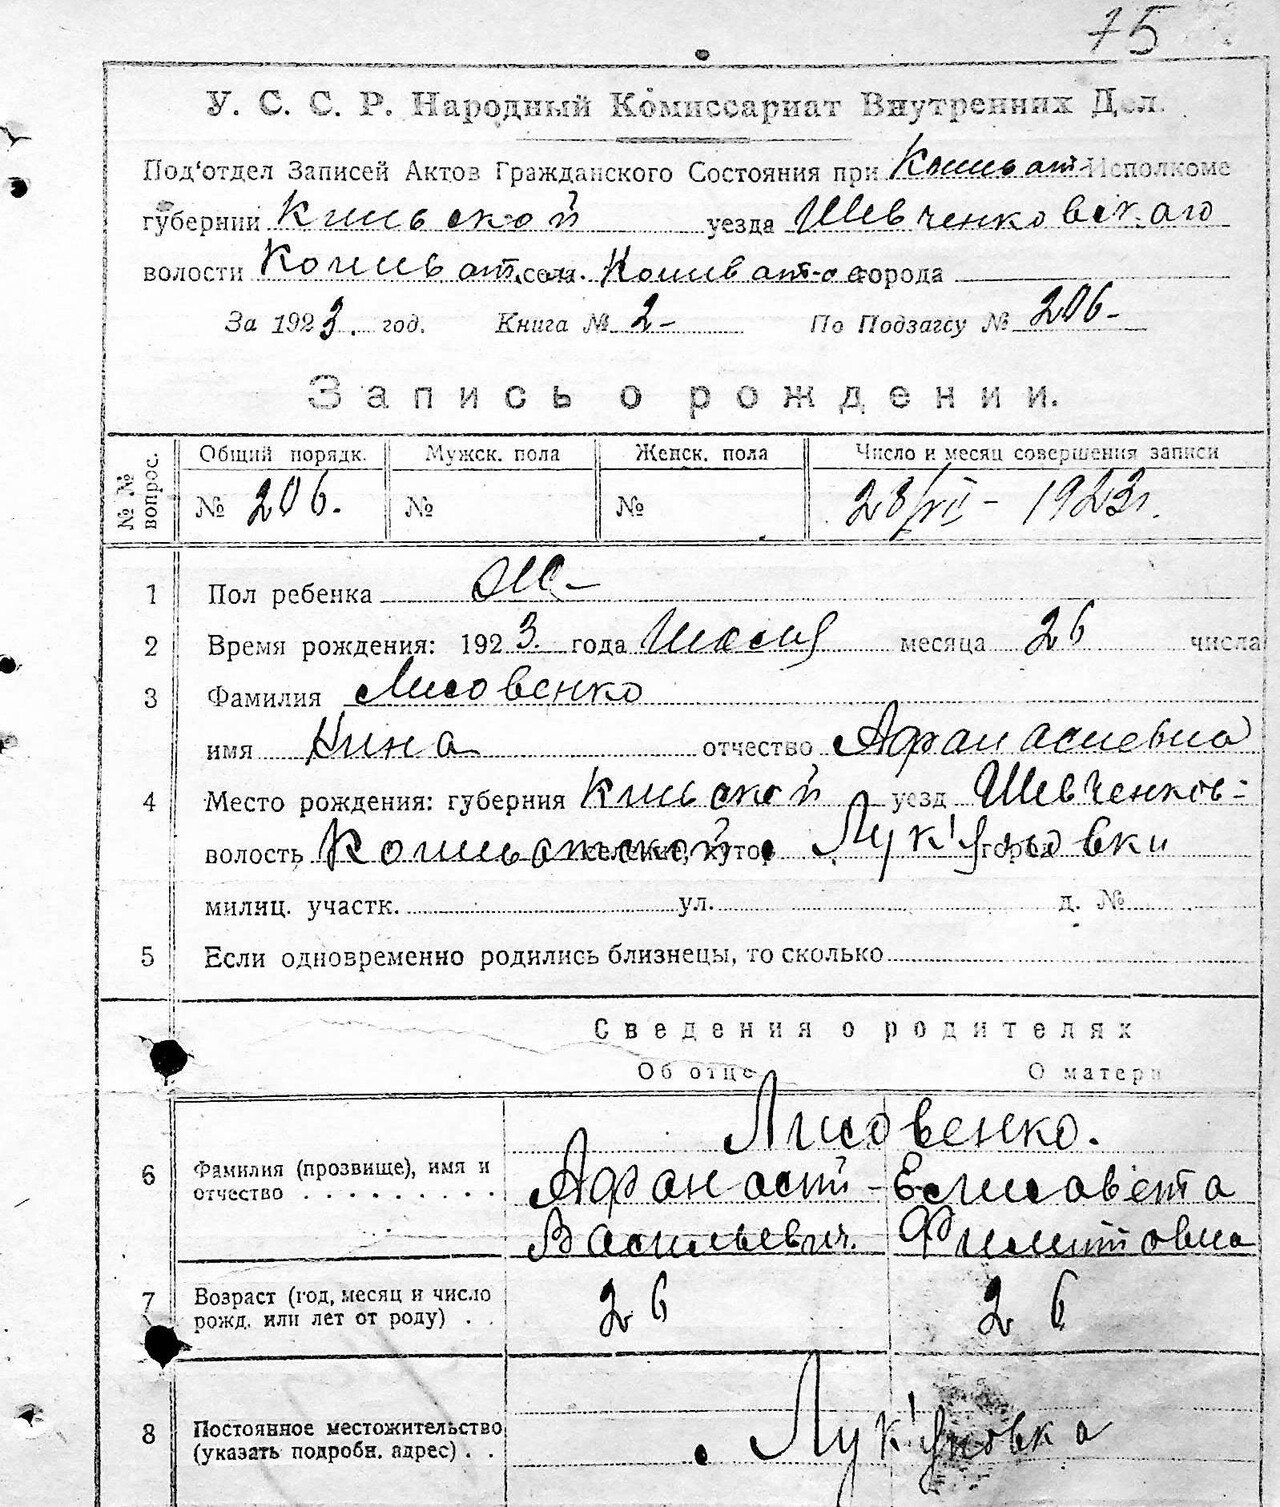 75
У. С. С. Р. Народный Комиссариат Внутренних Дел.
Под‘отдел Записей Актов Гражданского Состояния при Кошеват. Исполкоме
губернии Киевской уезда Шевченковск.аго
волости Кошеват. села. Кошеват-ое города
За 1923. год. Книга № 2- По Подзагсу № 206-
Запись о рождении.
№ № вопрос. Общий порядк. Мужск. пола Женск. пола Число и месяц совершения записи
№ 206. № № 28/VII- 1923г.
1 Пол ребенка Ж-
2 Время рождения: 1923. года Июля месяца 26 числа
3 Фамилия Лисовенко
имя Нина отчество Афанасиевна
4 Место рождения: губерния Киевской уезд Шевченков-
волость Кошеватской селение, хутор Лук'яновки город
милиц. участк. ул. д. №
5 Если одновременно родились близнецы, то сколько
Сведения о родителях
Об отце О матери
Лисовенко.
6 Фамилия (прозвище), имя и Афанасий- Елисавета
отчество Васильевич. Филиповна
7 Возраст (год, месяц и число 26 26
рожд. или лет от роду) . .
8 Постоянное местожительство Лук'яновка
(указать подробн. адрес) . .